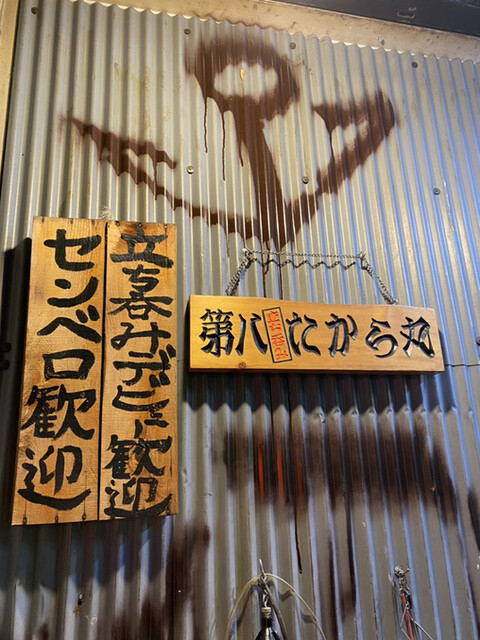 立ち呑みデビュー歓迎
センベロ歓迎
第八たから丸